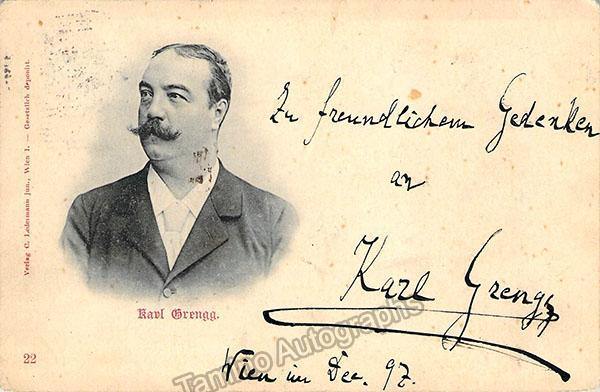 Verlag C. Ledermann jun., Wien I. — Gesetzlich deponirt.
Zu freundlichem Gedenken
an
Karl Grengg
Wien im Dec. 97.
Karl Grengg.
22
Tamino Autographs